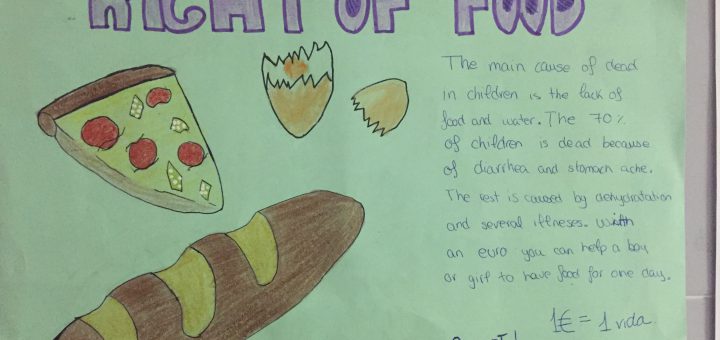 RIGHT OF FOOD
The main cause of dead
in children is the lack of
food and water. The 70%
of children is dead because
of diarrhea and stomach ache.
The rest is caused by dehydratation
and several illneses. With
an euro you can help a boy
or girl to have food for one day.
1€ = 1 vida